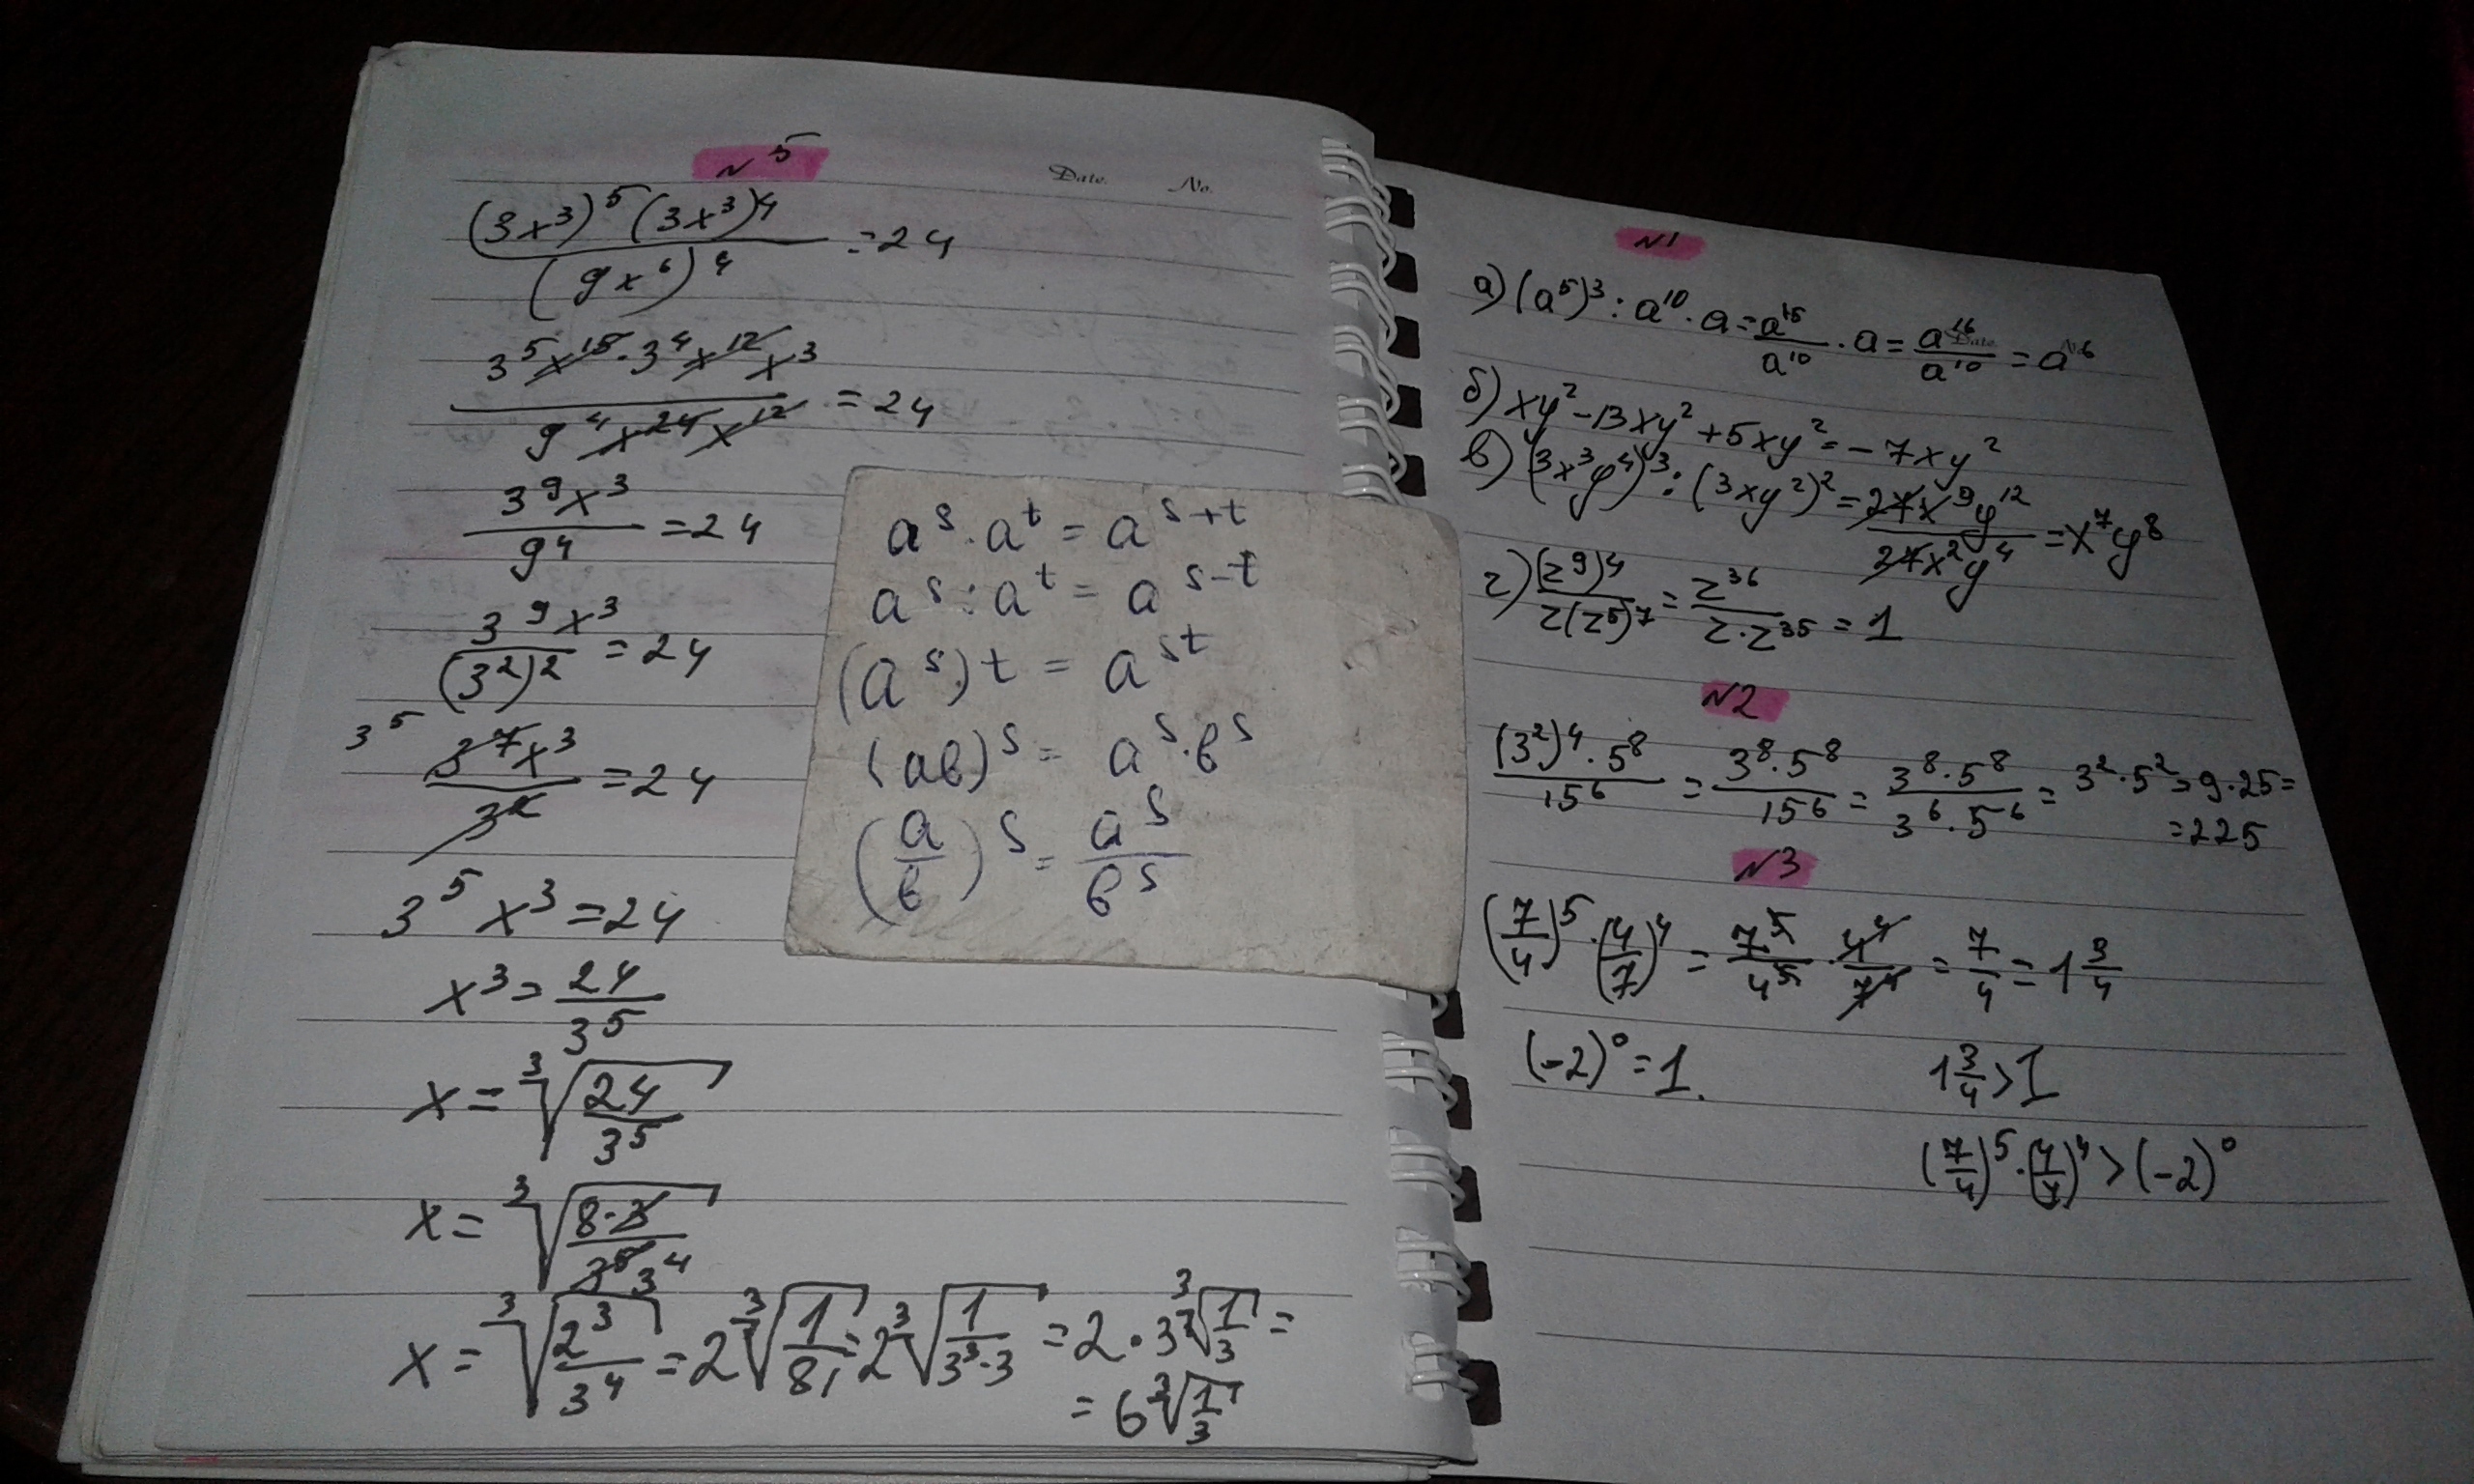 N 5
Date. No.
(3x³)⁵(3x³)⁴ / (9x⁶)⁴ = 24
3⁵x¹⁵·3⁴x¹²x³ / 9⁴x²⁴x¹² = 24
3⁹x³ / 9⁴ = 24
3⁹x³ / (3²)² = 24
3⁵ 3⁷x³ / 3² = 24
3⁵x³ = 24
x³ = 24/3⁵
x = ∛(24/3⁵)
x = ∛(8·3 / 3⁵ 3⁴)
x = ∛(2³/3⁴) = 2∛(1/81) = 2∛(1/3³·3) = 2·3∛(1/3) =
= 6∛(1/3)
aˢ·aᵗ = aˢ⁺ᵗ
aˢ:aᵗ = aˢ⁻ᵗ
(aˢ)ᵗ = aˢᵗ
(aв)ˢ = aˢ·вˢ
(a/в)ˢ = aˢ/вˢ
N1
а) (a⁵)³ : a¹⁰·a = a¹⁵/a¹⁰·a = a¹⁶/a¹⁰ = a⁶
б) xy² - 13xy² + 5xy² = -7xy²
в) (3x³y⁴)³ : (3xy²)² = 27x⁹y¹² / 27x²y⁴ = x⁷y⁸
г) (z⁹)⁴ / z(z⁵)⁷ = z³⁶ / z·z³⁵ = 1
N2
(3²)⁴·5⁸ / 15⁶ = 3⁸·5⁸ / 15⁶ = 3⁸·5⁸ / 3⁶·5⁶ = 3²·5² = 9·25 =
= 225
N3
(7/4)⁵·(4/7)⁴ = 7⁵/4⁵ · 4⁴/7⁴ = 7/4 = 1 3/4
(-2)⁰ = 1. 1 3/4 > 1
(7/4)⁵·(4/7)⁴ > (-2)⁰